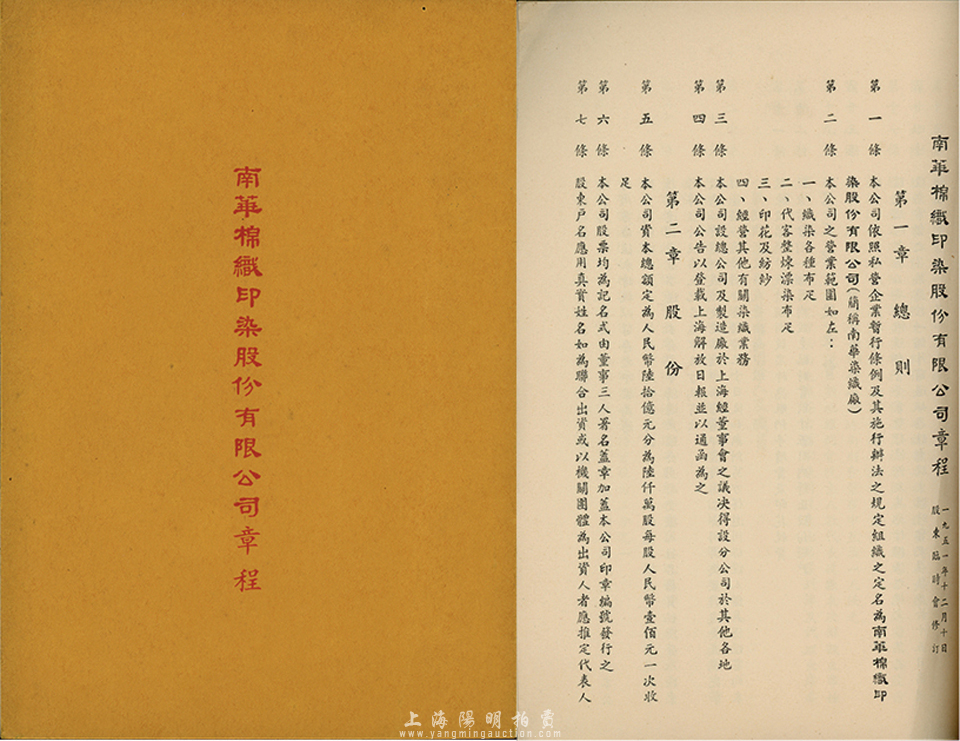 南華棉織印染股份有限公司章程
南華棉織印染股份有限公司章程
一九五一年十二月十日
股東臨時會修訂
第一章 總則
第一條 本公司依照私營企業暫行條例及其施行辦法之規定組織之定名為南華棉織印
染股份有限公司(簡稱南華染織廠)
第二條 本公司之營業範圍如左:
一、織染各種布疋
二、代客整煉漂染布疋
三、印花及紡紗
四、經營其他有關染織業務
第三條 本公司設總公司及製造廠於上海經董事會之議决得設分公司於其他各地
第四條 本公司公告以登載上海解放日報並以通函為之
第二章 股份
第五條 本公司資本總額定為人民幣陸拾億元分為陸仟萬股每股人民幣壹佰元一次收
足
第六條 本公司股票均為記名式由董事三人署名蓋章加蓋本公司印章編號發行之
第七條 股東戶名應用真實姓名如為聯合出資或以機關團體為出資人者應推定代表人
上海陽明拍賣
www.yangmingauction.com